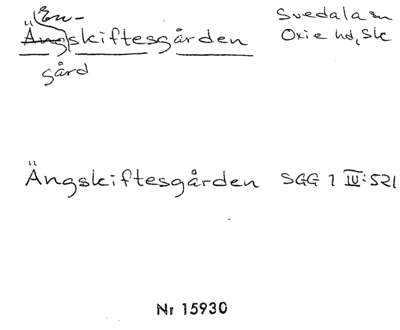 En-
Ängskiftesgården
gård
Svedala sn
Oxie hd, Sk
Ängskiftesgården SGG 1 IV:521
Nr 15930